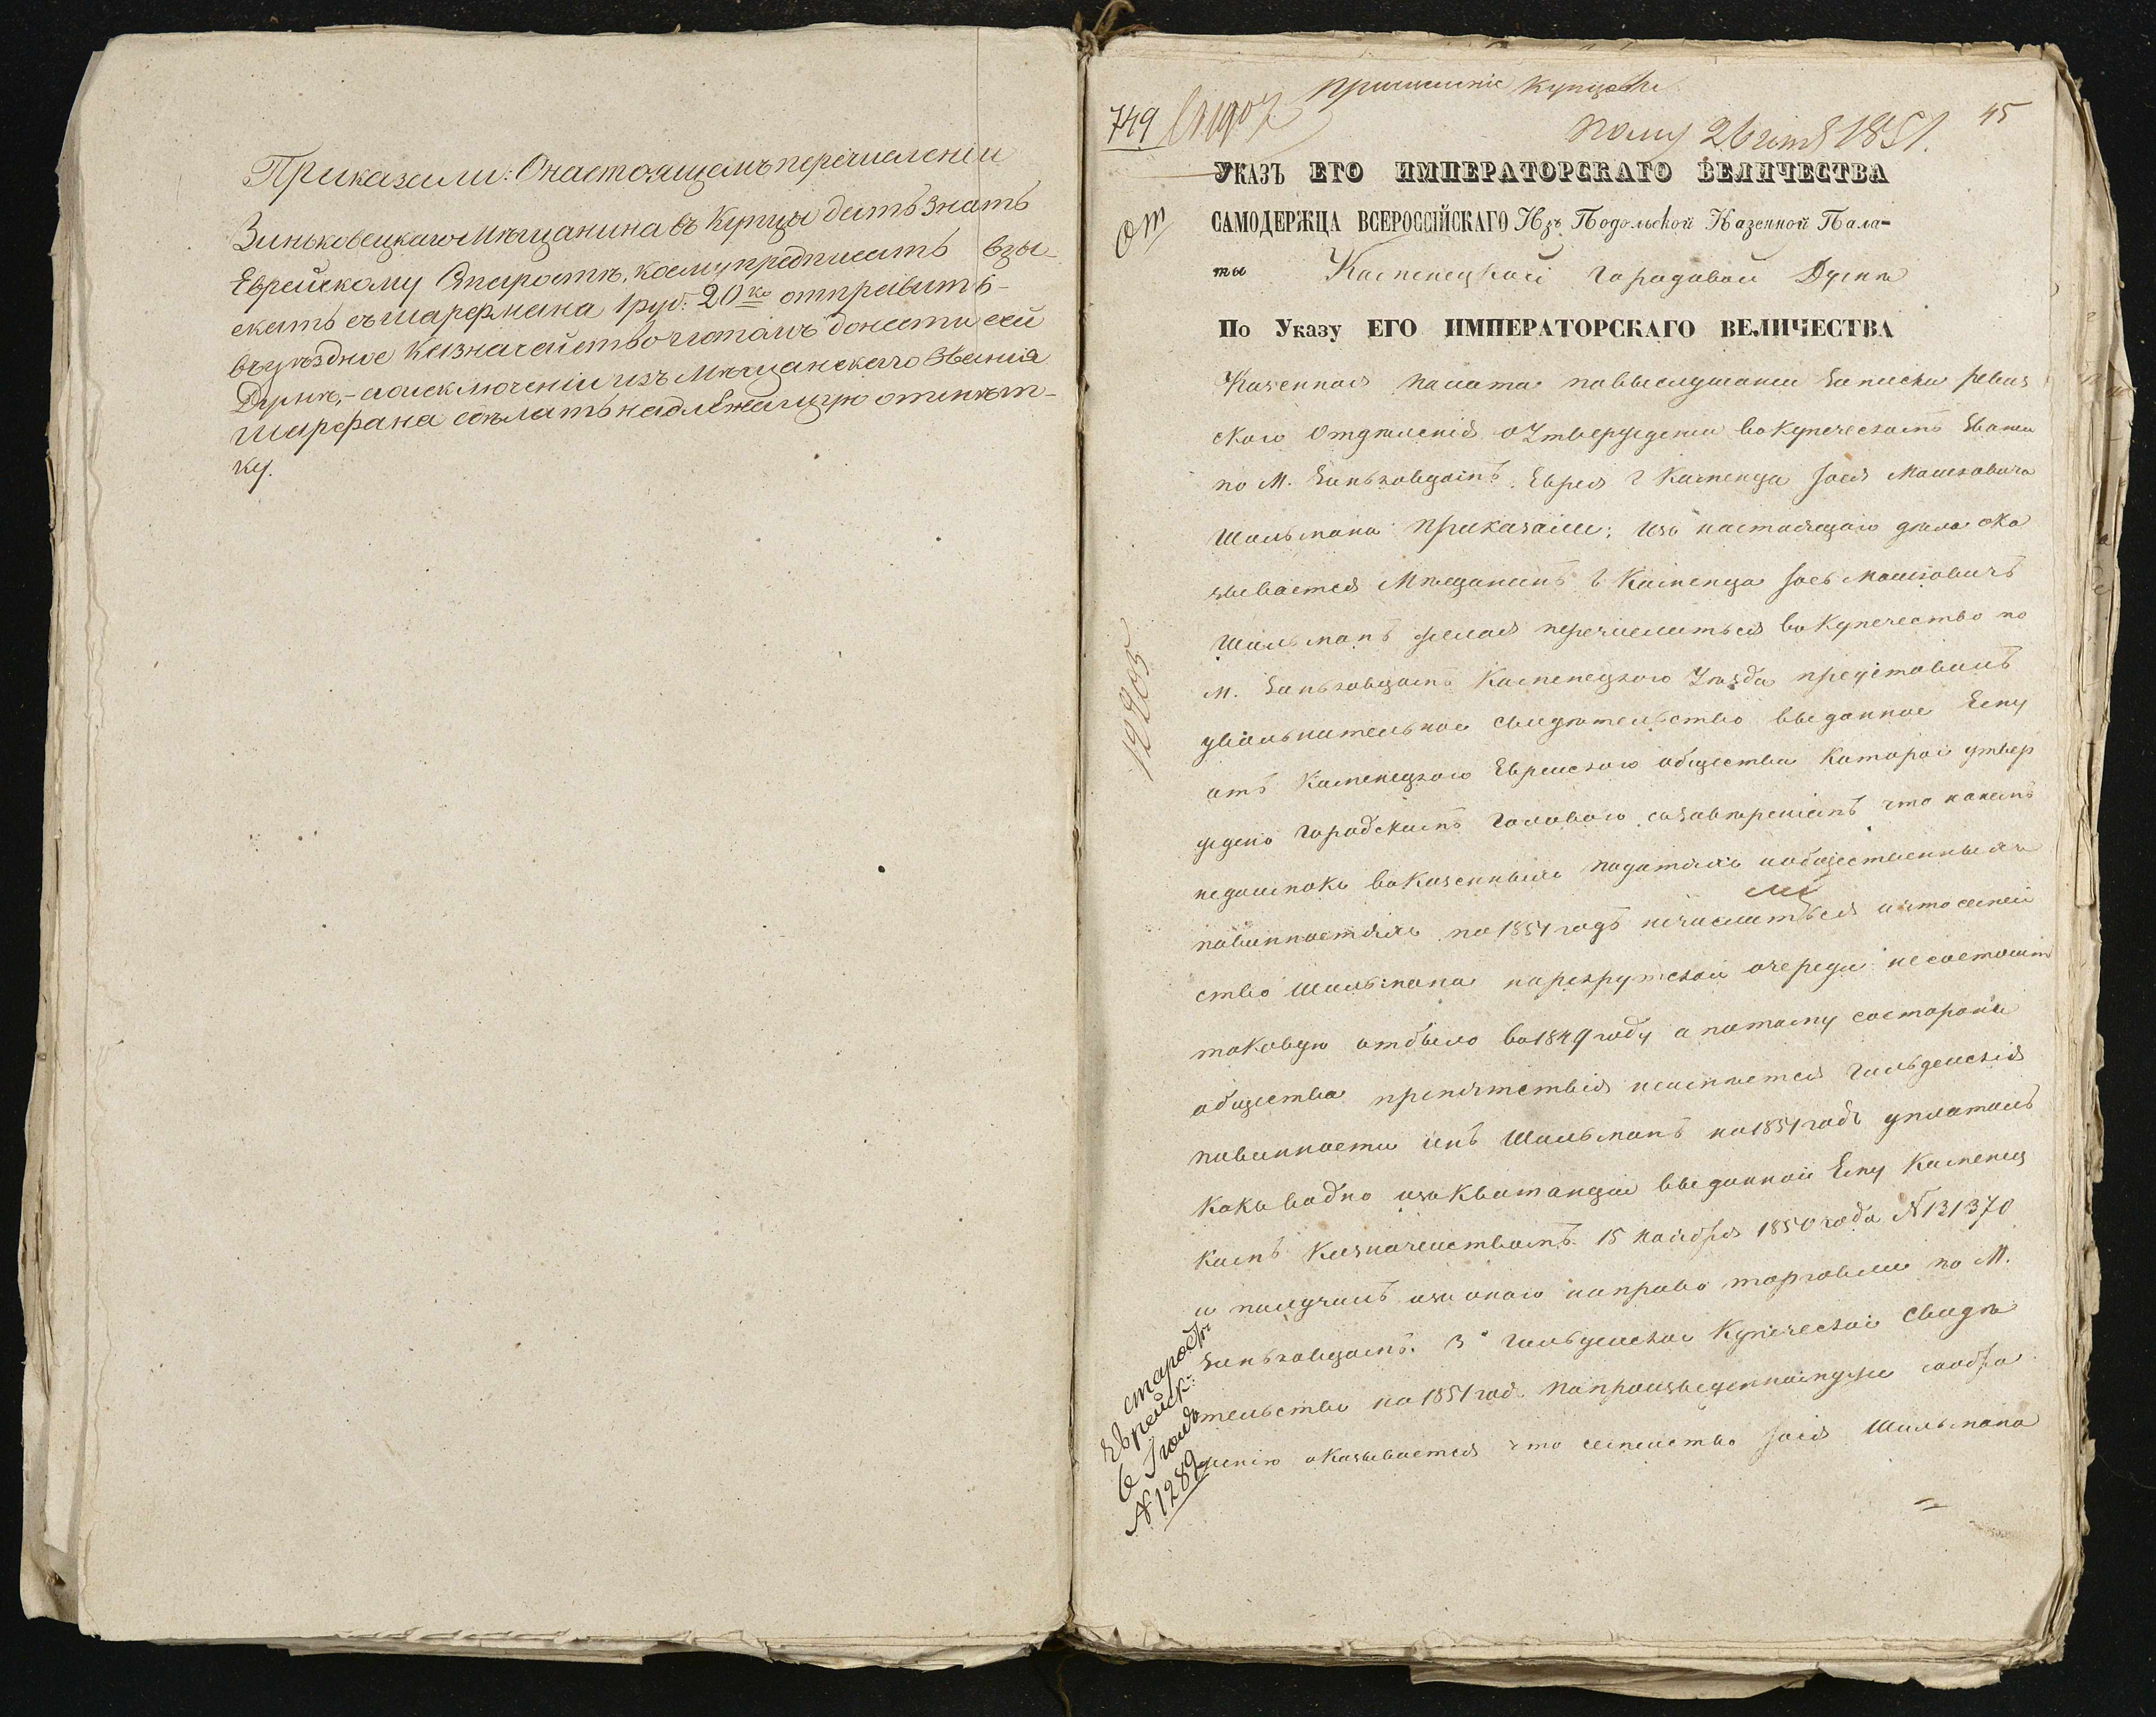 Приказали: О настоящемъ перечислении
Зиньковецкаго Мещанина въ Купцы дать знать
Еврейскому Старостѣ, коему предписать взы-
скать съ Шарфмана 1 руб. 20 ко отправить
въ уѣздное Казначейство и о томъ донести сей
Думѣ, - а о исключеніи изъ Мѣщанскаго Званія
Шарфана сдѣлать надлежащую отмѣт-
ку.
749
Причисленіе Купцовъ
Получ 26 1851.
45
УКАЗЪ ЕГО ИМПЕРАТОРСКАГО ВЕЛИЧЕСТВА
от
САМОДЕРЖЦА ВСЕРОССІЙСКАГО Изъ Подольской Казенной Пала-
ты Каменецкой городовой Думѣ
По Указу ЕГО ИМПЕРАТОРСКАГО ВЕЛИЧЕСТВА
Казенная Палата по выслушании записки ревиз
ского Отделенія о Утверждении въ купечествѣ звании
по М. Зиньковцамъ Еврея г Каменца Иося Мошковича
Шильмана Приказали: Изъ настоящаго дѣла ока
зывается Мѣщанинъ г Каменца Иось Мошковичъ
Шильманъ желая перечислиться въ купечество по
м. Зиньковцамъ Каменецкого Уѣзда представилъ
увольнительное свидѣтельство выданное Ему
отъ Каменецкого Еврейского общества которое утвер
ждено городскимъ головою созаверениемъ что на немъ
недоимокъ въ казенныхъ податяхъ и общественныхъ
повинностяхъ по 1851 годъ нечислиться и что семей
ство Шильмана на рекрутской очереди несостоитъ
таковую отбыло въ 1849 году а потому состороны
общества препятствія неимѣется гильдейскія
повинности онъ Шильманъ на 1851 годъ уплатилъ
какъ видно изъ квитанции выданной Ему Каменец
кимъ Казначействомъ 15 ноября 1850 года № 131370
и получилъ изъ оного на право торговли по М.
Зиньковцамъ 3й гильдейское Купеческое свидѣ
тельство на 1851 годъ. По произведенному же сообра
женію оказывается что семейство Иося Шильмана
12205
Старостѣ
Еврейск:
№ 1289